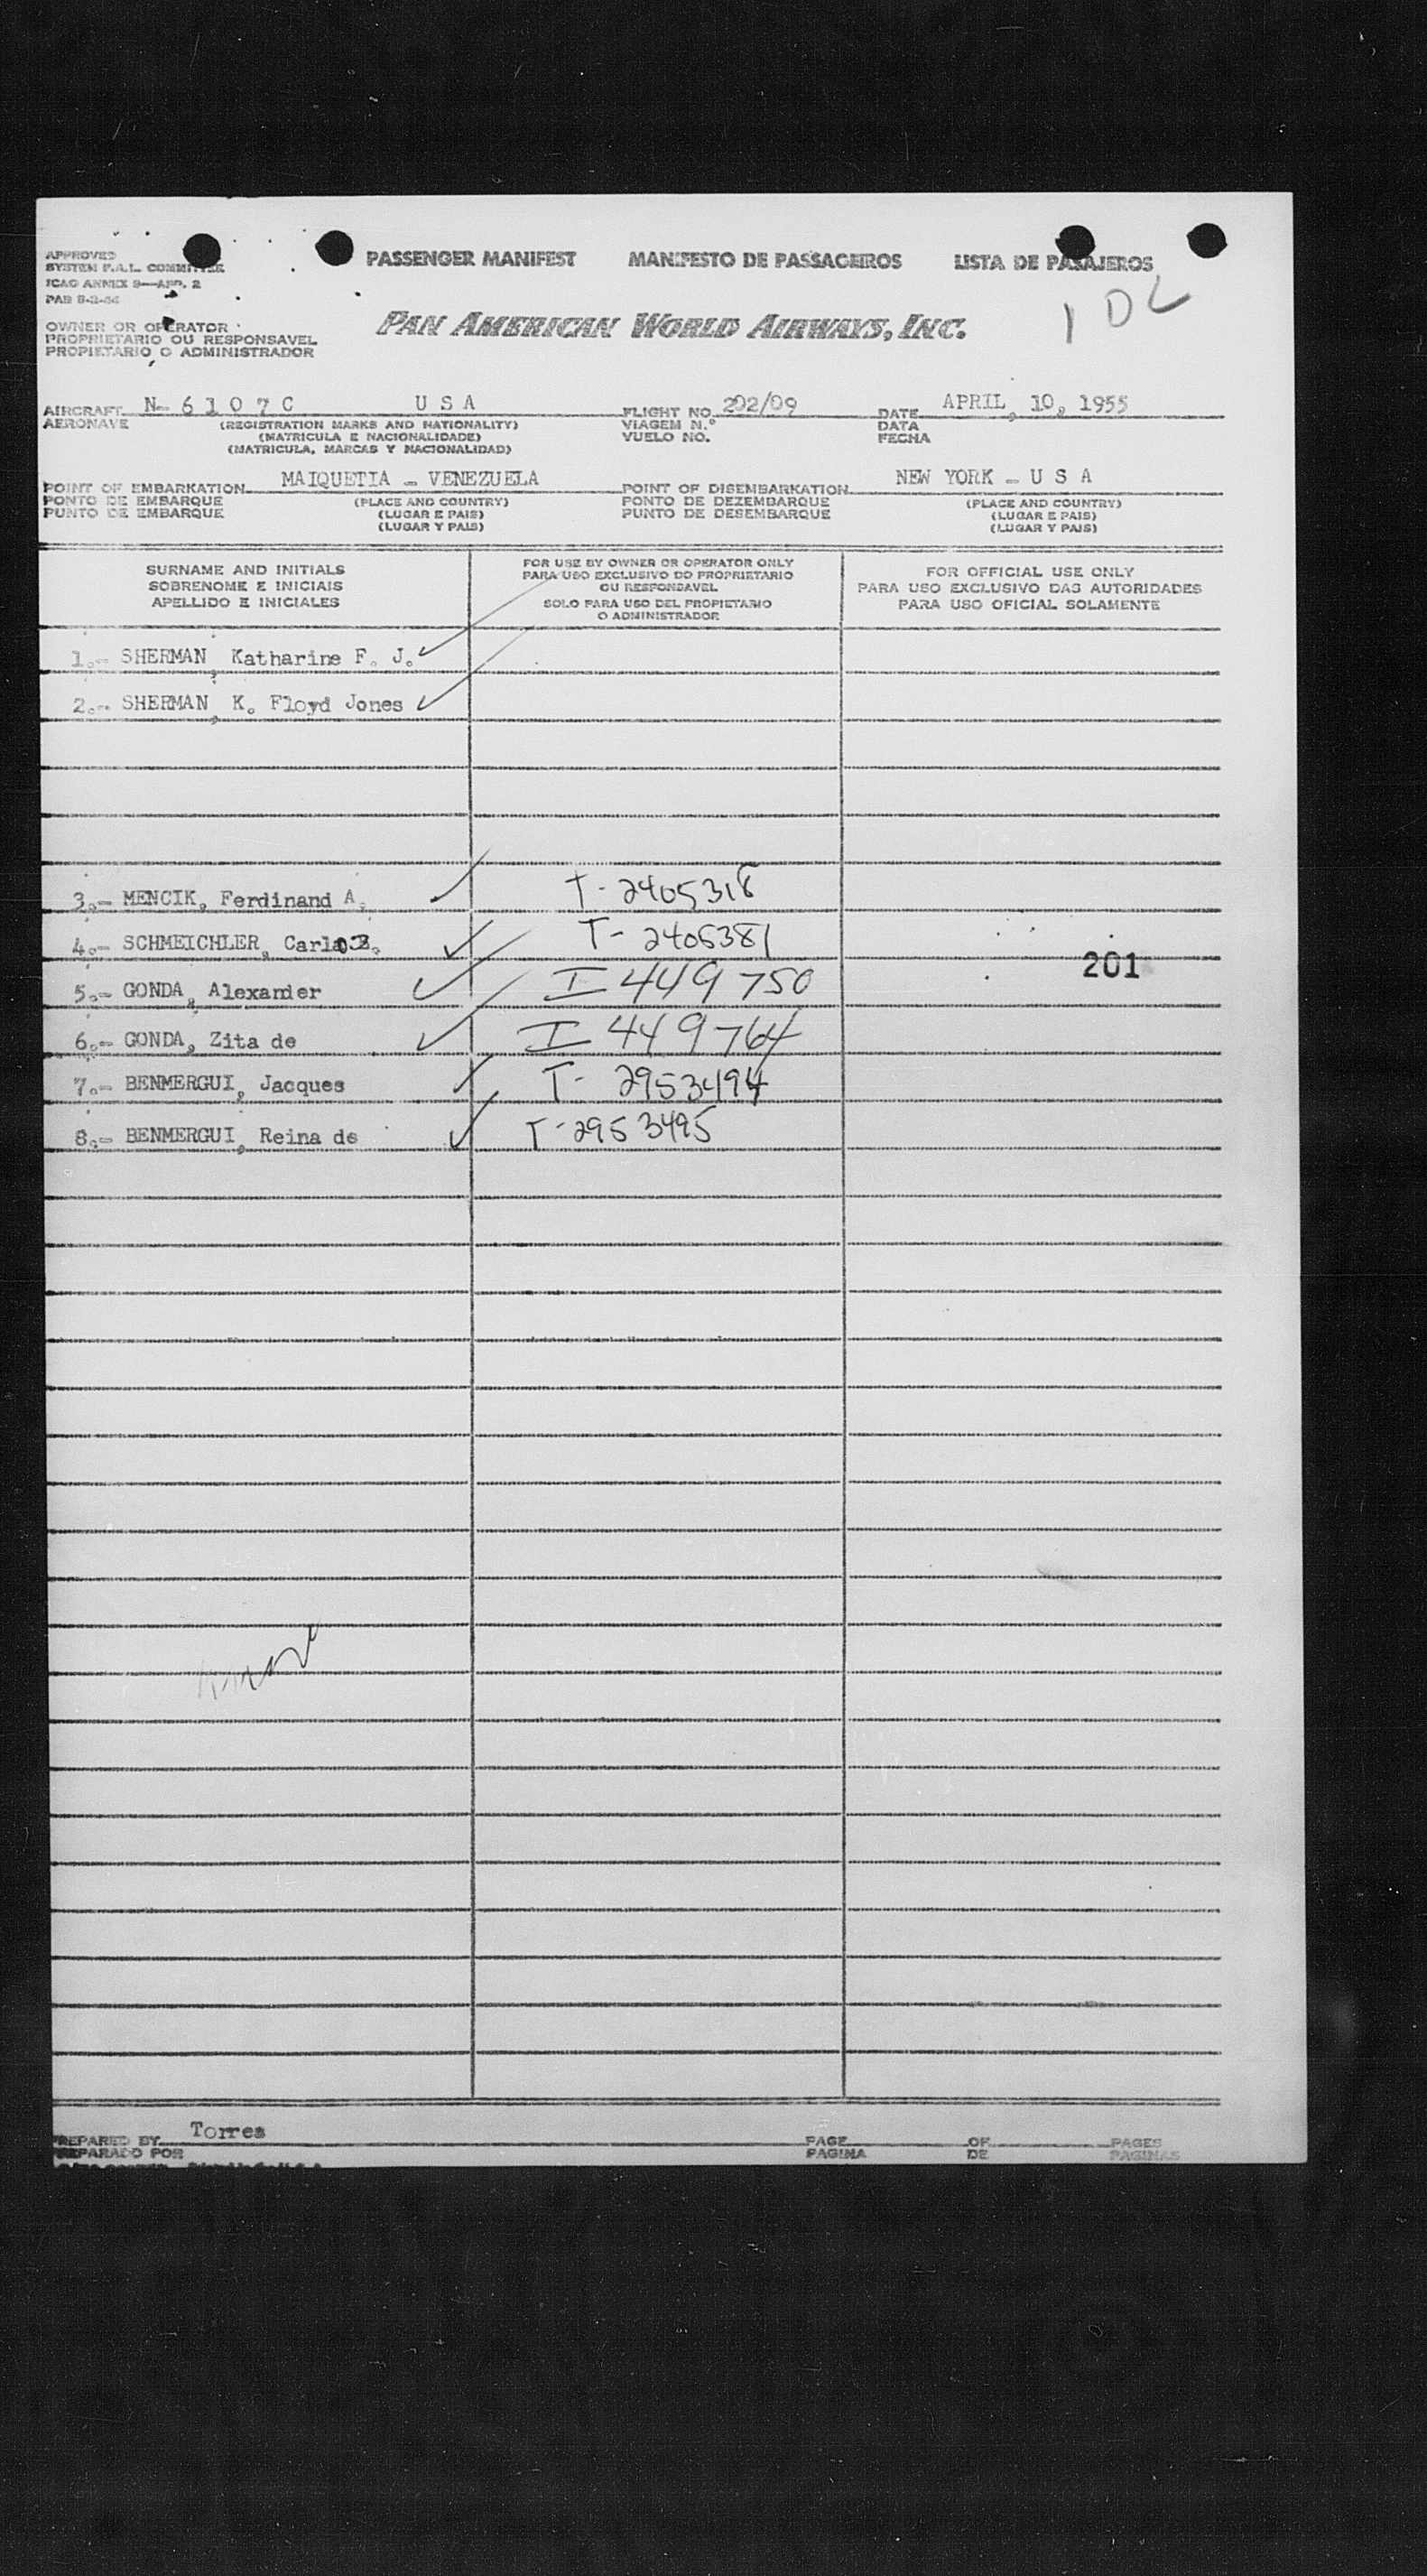 APPROVED
SYSTEM F.A.L. COMMITTEE
ICAO ANNEX 9—APP. 2
PASSENGER MANIFEST MANIFESTO DE PASSAGEIROS LISTA DE PASAJEROS
OWNER OR OPERATOR
PROPRIETARIO OU RESPONSAVEL
PROPIETARIO O ADMINISTRADOR
PAN AMERICAN WORLD AIRWAYS, INC.
1 DL
AIRCRAFT N- 6 1 0 7 C U S A FLIGHT NO. 202/09 DATE APRIL, 10, 1955
AERONAVE (REGISTRATION MARKS AND NATIONALITY) VIAGEM N.º DATA
(MATRICULA E NACIONALIDADE) VUELO NO. FECHA
(MATRICULA, MARCAS Y NACIONALIDAD)
POINT OF EMBARKATION MAIQUETIA - VENEZUELA POINT OF DISEMBARKATION NEW YORK - U S A
PONTO DE EMBARQUE (PLACE AND COUNTRY) PONTO DE DEZEMBARQUE (PLACE AND COUNTRY)
PUNTO DE EMBARQUE (LUGAR E PAIS) PUNTO DE DESEMBARQUE (LUGAR E PAIS)
(LUGAR Y PAIS) (LUGAR Y PAIS)
SURNAME AND INITIALS
SOBRENOME E INICIAIS
APELLIDO E INICIALES
FOR USE BY OWNER OR OPERATOR ONLY
PARA USO EXCLUSIVO DO PROPRIETARIO
OU RESPONSAVEL
SOLO PARA USO DEL PROPIETARIO
O ADMINISTRADOR
FOR OFFICIAL USE ONLY
PARA USO EXCLUSIVO DAS AUTORIDADES
PARA USO OFICIAL SOLAMENTE
1.- SHERMAN, Katharine F. J.
2.- SHERMAN, K. Floyd Jones
3.- MENCIK, Ferdinand A. T-2405318
4.- SCHMEICHLER, Carlo T-2405381
201
5.- GONDA, Alexander I 449 750
6.- GONDA, Zita de I 449764
7.- BENMERGUI, Jacques T- 2953494
8.- BENMERGUI, Reina de T-2953495
PREPARED BY Torres PAGE OF PAGES
PREPARADO POR PAGINA DE PAGINAS